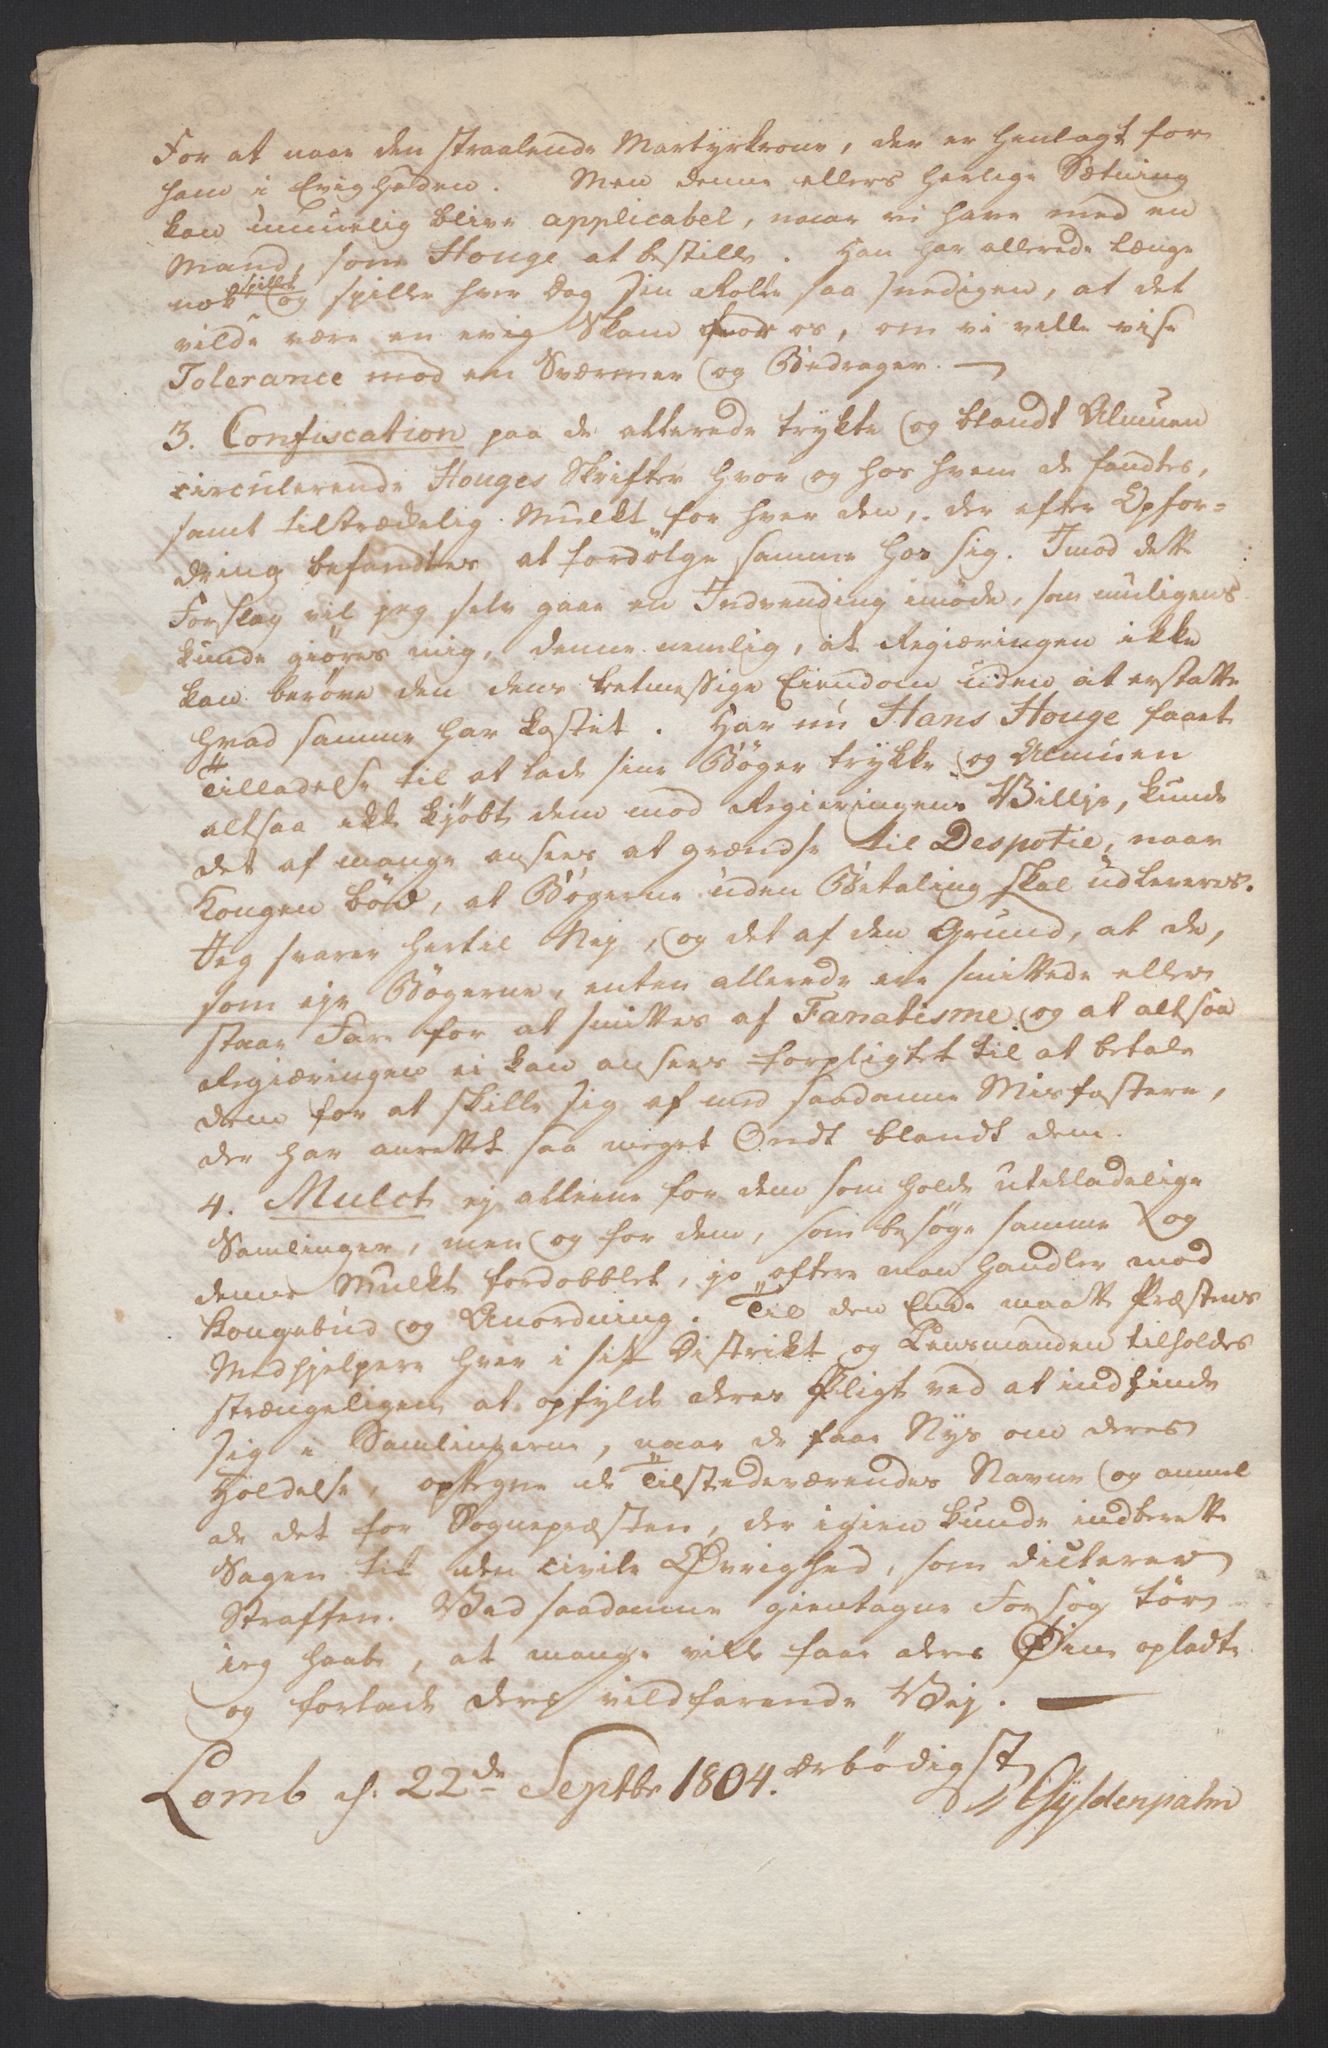 For at naae den straalende Martyrkrone, der er henlagt for
ham i Evigheden. Men denne ellers herlige Sætning
kan umuelig blive applicabel, naar vi have med en
Mand, som Houge at bestille. Han har allerede længe
nok spillet og spiller hver Dag sin Rolle saa snedigen, at det
vilde være en evig Skam for os, om vi ville vise
Tolerance mod en Sværmer og Bedrager. —
3. Confiscation paa de allerede trykte og blandt Almuen
circulerende Houges Skrifter hvor og hos hvem de fandtes,
samt tilstrækkelig Mulkt for hver den, der efter Opfor-
dring befandtes at fordølge samme hos sig. Imod dette
Forslag vil jeg selv gaae en Indvending imøde, som muligens
kunde giøres mig, denne nemlig, at Regiæringen ikke
kan berøve den dens retmessige Eiendom uden at erstatte
hvad samme har kostet. Har nu Hans Houge faaet
Tilladelse til at lade sine Bøger trykke og Almuen
altsaa ikke kjøbt dem mod Regieringens Villje, kunde
det af mange ansees at grændse til Despotie, naar
Kongen bød, at Bøgerne uden Betaling skal udleveres.
Jeg svarer hertil Nej, og det af den Grund, at de,
som eje Bøgerne, enten allerede ere smittede eller
staae Fare for at smittes af Fanatisme og at altsaa
Regiæringen ei kan ansees forpligtet til at betale
dem for at skille sig af med saadanne Misfostere,
der har anrettet saa meget Ondt blandt dem.
4. Mulct ej alleene for dem som holde utilladelige
Samlinger, men og for dem, som besøge samme og
denne Mulkt fordobblet, jo oftere man handler mod
Kongebud og Anordning. Til den Ende maatte Præstens
Medhjelpere hver i sit Distrikt og Lensmanden tilholdes
strængeligen at opfylde deres Pligt ved at indfinde
sig i Samlingerne, naar de faae Nys om deres
Holdelse, optegne de Tilstedeværendes Navne og anmel
de det for Sognepræsten, der igien kunde indberette
Sagen til den civile Øvrighed, som dicterer
Straffen. Ved saadanne gientagne Forsøg tør
ieg haabe, at mange ville faae deres Øine opladte
og forlade deres vildfarende Vej. —
Lomb d. 22de Septbr 1804. ærbödigst
Gyldenpalm